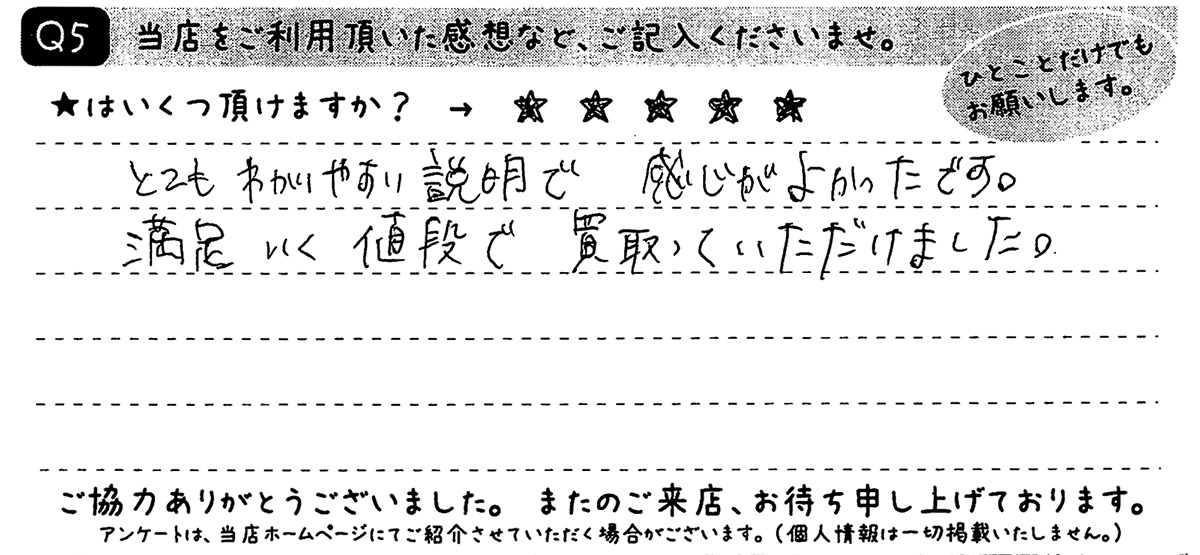 Q5 当店をご利用頂いた感想など、ご記入くださいませ。
ひとことだけでも
お願いします。
★はいくつ頂けますか？ → ★ ★ ★ ★ ★
とてもわかりやすい説明で 感じがよかったです。
満足いく値段で 買取っていただけました。
ご協力ありがとうございました。 またのご来店、お待ち申し上げております。
アンケートは、当店ホームページにてご紹介させていただく場合がございます。（個人情報は一切掲載いたしません。）